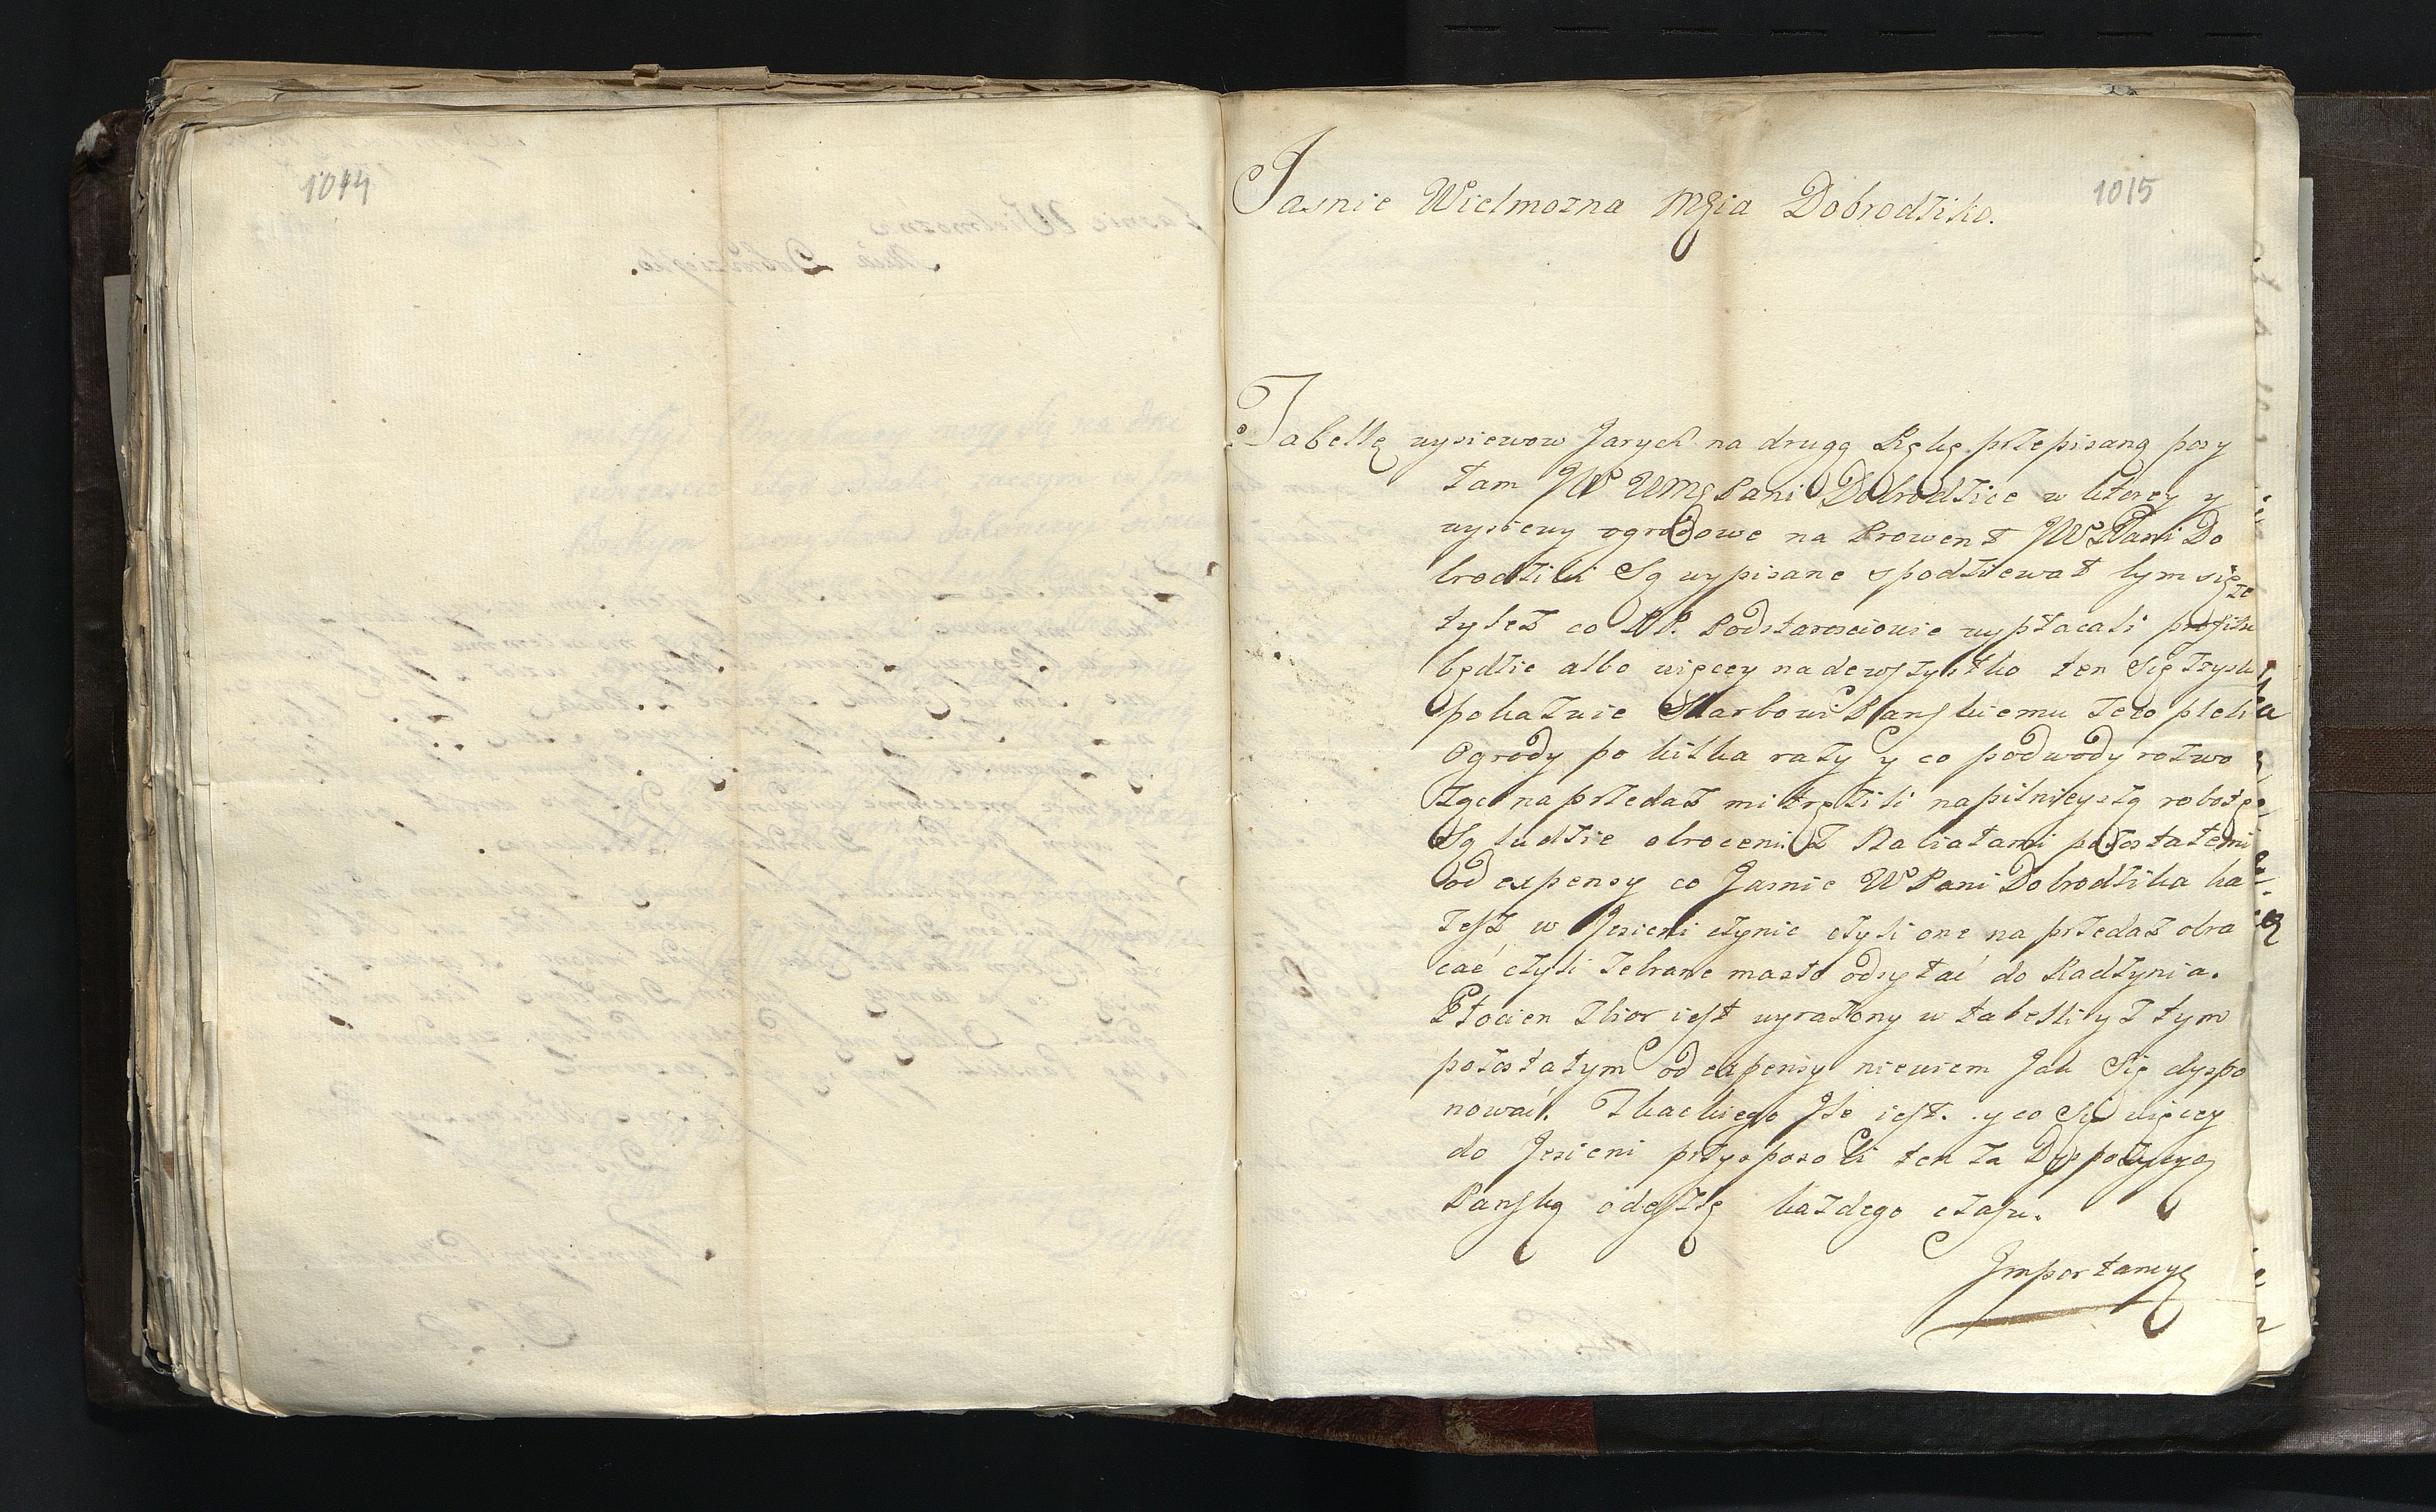 1014
1015
Jasnie Wielmozna Mgia Dobrodziko.
Tabellę wysiewow Jarych na drugą Rękę przepisaną posy
łam JW WMę Pani Dobrodzice w ktorey y
wysiewy ogrodowe na Prowent JWPani Do
brodziki Są wypisane spodziewał bym się ze
tyleż co PP. Podstarosciowie wypłacali profitu
będzie albo więcey nadewszystko ten Się zysk
pokazuie Skarbowi Panskiemu ze co pleli
Ogrody po kilka razy y co podwody rozwo
ząc na przedaż mitrężili na pilnieyszą robotę
Są ludzie obroceni. Z Nabiałami pozostałemi
od expensy co Jasnie WPani Dobrodzika ka
żesz w Jesieni czynic czyli one na przedaż obra
cać czyli zebrane masło odsyłać do Radzynia.
Płocien zbior iest wyrażony w tabelli y z tym
pozostałym od expensy niewiem Jak Się dyspo
nować. Tkackiego Jle iest. y co Się więcey
do Jesieni przysposobi ten za Dyspozycyą
Panską odeszlę każdego czasu.
Jmportancyę